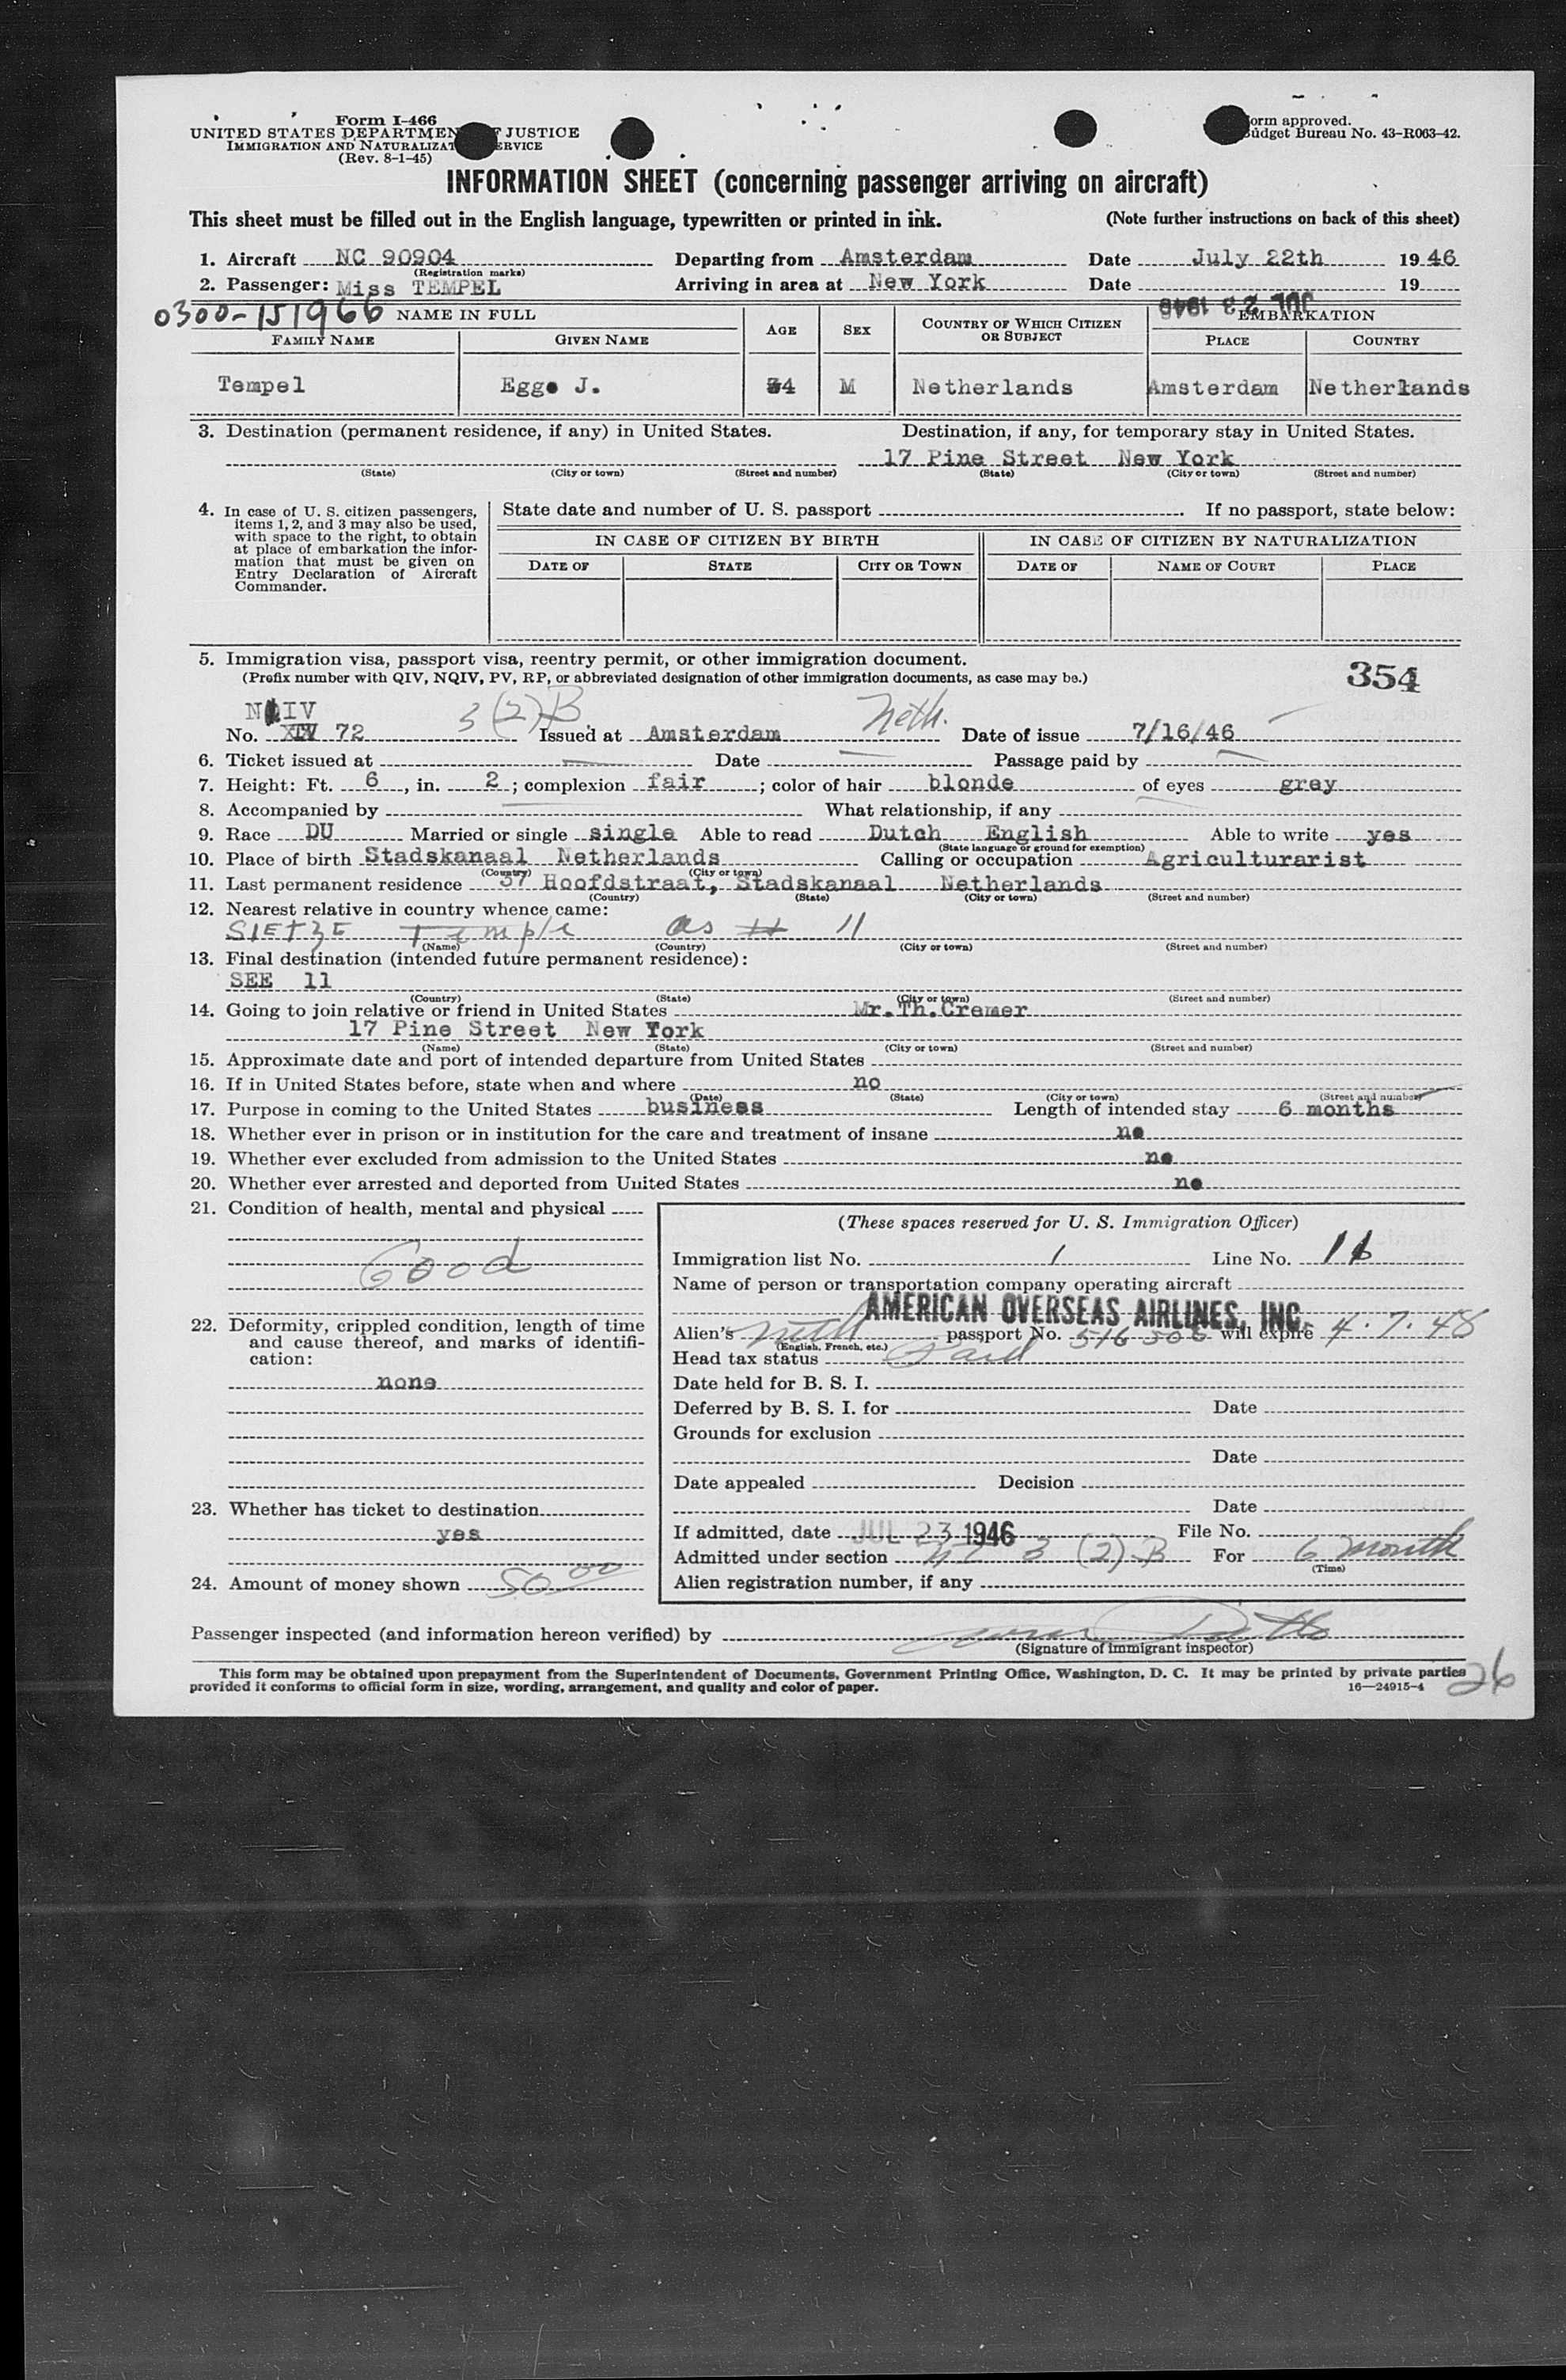 Form I-466
UNITED STATES DEPARTMENT OF JUSTICE
IMMIGRATION AND NATURALIZATION SERVICE
(Rev. 8-1-45)
Form approved.
Budget Bureau No. 43-R063-42.
INFORMATION SHEET (concerning passenger arriving on aircraft)
This sheet must be filled out in the English language, typewritten or printed in ink. (Note further instructions on back of this sheet)
1. Aircraft NC 90904 Departing from Amsterdam Date July 22th 1946
(Registration marks)
2. Passenger: Miss TEMPEL Arriving in area at New York Date 19
JUL 23 1946
0300-151966 NAME IN FULL AGE SEX COUNTRY OF WHICH CITIZEN OR SUBJECT EMBARKATION
FAMILY NAME GIVEN NAME PLACE COUNTRY
Tempel Egge J. 34 M Netherlands Amsterdam Netherlands
3. Destination (permanent residence, if any) in United States. Destination, if any, for temporary stay in United States.
17 Pine Street New York
(State) (City or town) (Street and number) (State) (City or town) (Street and number)
4. In case of U. S. citizen passengers, items 1, 2, and 3 may also be used, with space to the right, to obtain at place of embarkation the information that must be given on Entry Declaration of Aircraft Commander.
State date and number of U. S. passport If no passport, state below:
IN CASE OF CITIZEN BY BIRTH IN CASE OF CITIZEN BY NATURALIZATION
DATE OF STATE CITY OR TOWN DATE OF NAME OF COURT PLACE
5. Immigration visa, passport visa, reentry permit, or other immigration document.
(Prefix number with QIV, NQIV, PV, RP, or abbreviated designation of other immigration documents, as case may be.)
354
NQIV 3(2)B Neth.
No. 72 Issued at Amsterdam Date of issue 7/16/46
6. Ticket issued at Date Passage paid by
7. Height: Ft. 6, in. 2; complexion fair; color of hair blonde of eyes grey
8. Accompanied by What relationship, if any
9. Race DU Married or single single Able to read Dutch English Able to write yes
(State language or ground for exemption)
10. Place of birth Stadskanaal Netherlands Calling or occupation Agriculturarist
(Country) (City or town)
11. Last permanent residence 37 Hoofdstraat, Stadskanaal Netherlands
(Country) (State) (City or town) (Street and number)
12. Nearest relative in country whence came:
SIETZE Temple as # 11
(Name) (Country) (City or town) (Street and number)
13. Final destination (intended future permanent residence):
SEE 11
(Country) (State) (City or town) (Street and number)
14. Going to join relative or friend in United States Mr.Th.Cremer
17 Pine Street New York
(Name) (State) (City or town) (Street and number)
15. Approximate date and port of intended departure from United States
16. If in United States before, state when and where no
(Date) (State) (City or town) (Street and number)
17. Purpose in coming to the United States business Length of intended stay 6 months
18. Whether ever in prison or in institution for the care and treatment of insane no
19. Whether ever excluded from admission to the United States no
20. Whether ever arrested and deported from United States no
21. Condition of health, mental and physical
Good
22. Deformity, crippled condition, length of time and cause thereof, and marks of identification:
none
23. Whether has ticket to destination
yes
24. Amount of money shown 50 00
(These spaces reserved for U. S. Immigration Officer)
Immigration list No. 1 Line No. 16
Name of person or transportation company operating aircraft
AMERICAN OVERSEAS AIRLINES, INC.
Alien's Neth passport No. 516506 will expire 4.7.48
(English, French, etc.)
Head tax status Paid
Date held for B. S. I.
Deferred by B. S. I. for Date
Grounds for exclusion
Date
Date appealed Decision
Date
If admitted, date JUL 23 1946 File No.
Admitted under section 3 (2) B For 6 month
(Time)
Alien registration number, if any
Passenger inspected (and information hereon verified) by
(Signature of immigrant inspector)
This form may be obtained upon prepayment from the Superintendent of Documents, Government Printing Office, Washington, D. C. It may be printed by private parties
provided it conforms to official form in size, wording, arrangement, and quality and color of paper. 16—24915-4
26